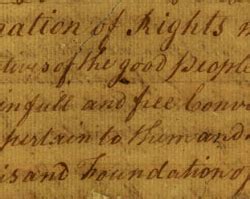 ration of Rights m
tives of the good people
in full and free Conve
pertain to them and
is and Foundation of